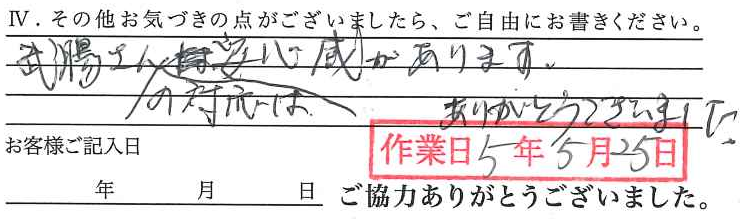 Ⅳ．その他お気づきの点がございましたら、ご自由にお書きください。
武腸さんの対応には安心感があります。
ありがとうございました
お客様ご記入日
作業日5年5月25日
年 月 日 ご協力ありがとうございました。